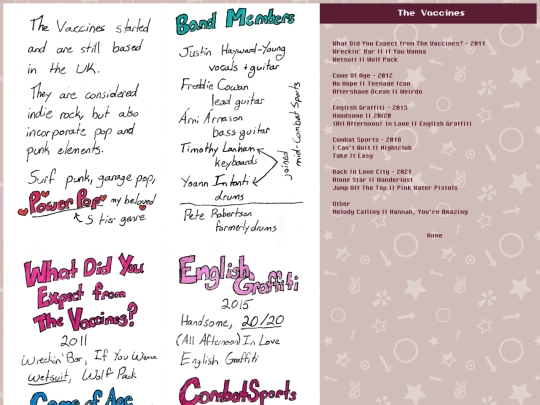 The Vaccines started
and are still based
in the UK.
They are considered
indie rock, but also
incorporate pop and
punk elements.
Surf punk, garage pop,
Power Pop my beloved
S tier genre
Band Members
Justin Hayward-Young
vocals + guitar
Freddie Cowan
lead guitar
Árni Árnason
bass guitar
Timothy Lanham
keyboards
Yoann Intonti
drums
joined
mid-Combat Sports
Pete Robertson
formerly drums
What Did You
Expect from
The Vaccines?
2011
Wreckin' Bar, If You Wanna
Wetsuit, Wolf Pack
Come of Age
English
Graffiti
2015
Handsome, 20/20
(All Afternoon) In Love
English Graffiti
Combat Sports
The Vaccines
What Did You Expect from The Vaccines? - 2011
Wreckin' Bar || If You Wanna
Wetsuit || Wolf Pack
Come Of Age - 2012
No Hope || Teenage Icon
Aftershave Ocean || Weirdo
English Graffiti - 2015
Handsome || 20/20
(All Afternoon) In Love || English Graffiti
Combat Sports - 2018
I Can't Quit || Nightclub
Take It Easy
Back In Love City - 2021
Alone Star || Wanderlust
Jump Off The Top || Pink Water Pistols
Other
Melody Calling || Hannah, You're Amazing
Home